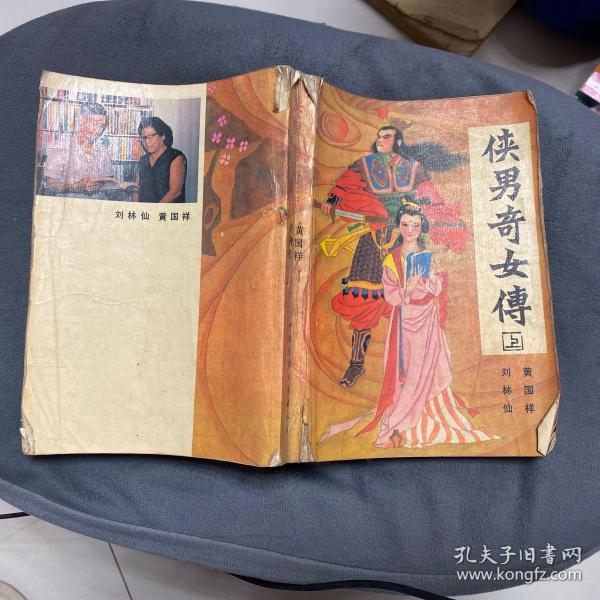 刘林仙 黄国祥
黄国祥
侠男奇女傳
上
黄国祥
刘林仙
孔夫子旧书网
www.kongfz.com